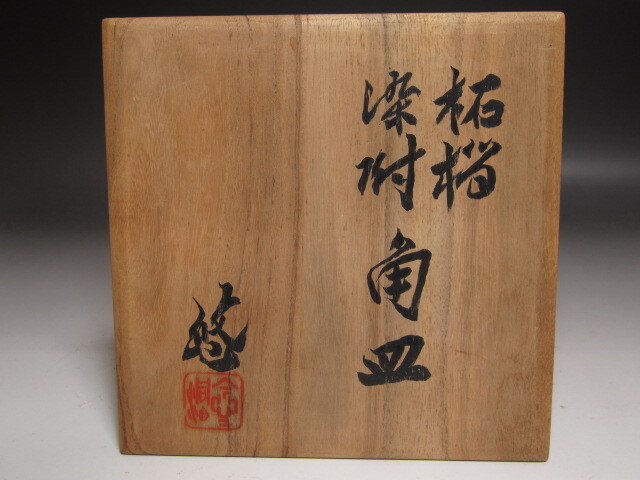 柘榴
染附
角皿
悠